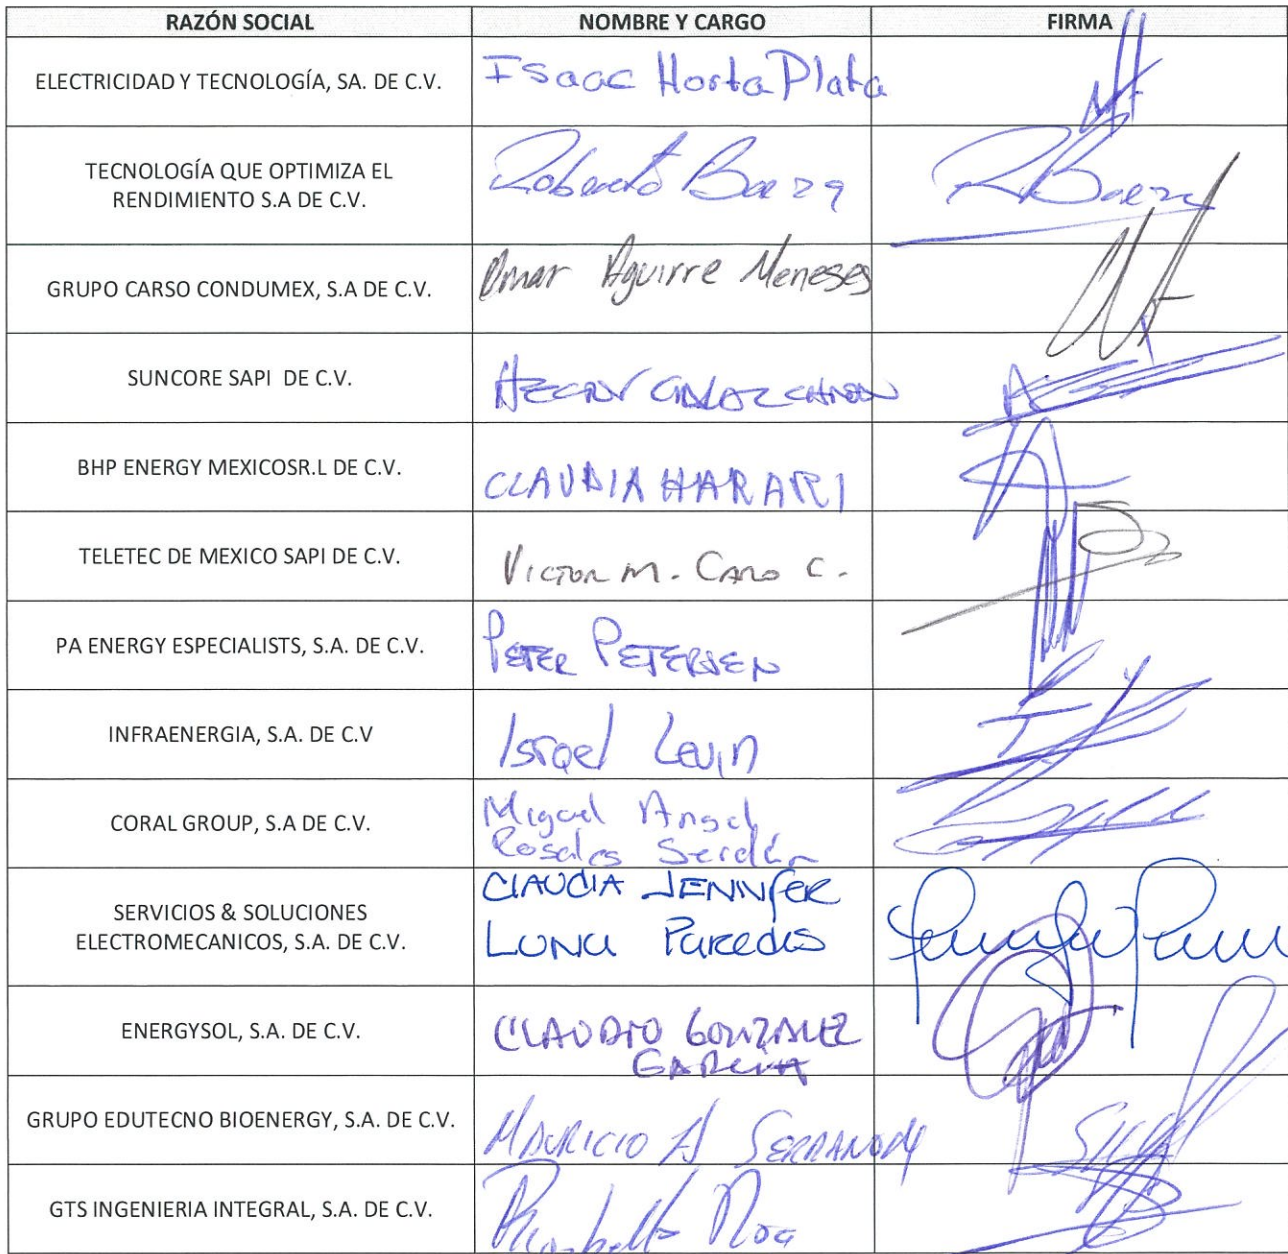 RAZÓN SOCIAL NOMBRE Y CARGO FIRMA
ELECTRICIDAD Y TECNOLOGÍA, SA. DE C.V. Isaac Horta Plata
TECNOLOGÍA QUE OPTIMIZA EL
RENDIMIENTO S.A DE C.V. Roberto Baeza RBaeza
GRUPO CARSO CONDUMEX, S.A DE C.V. Omar Aguirre Meneses
SUNCORE SAPI DE C.V.
BHP ENERGY MEXICOSR.L DE C.V. CLAUDIA HARARI
TELETEC DE MEXICO SAPI DE C.V. VICTOR M. CARO C.
PA ENERGY ESPECIALISTS, S.A. DE C.V. PETER PETERSEN
INFRAENERGIA, S.A. DE C.V Israel Levin
CORAL GROUP, S.A DE C.V. Miguel Angel
Rosales Serdán
SERVICIOS & SOLUCIONES
ELECTROMECANICOS, S.A. DE C.V. CLAUDIA JENNIFER
LUNA Paredes
ENERGYSOL, S.A. DE C.V. CLAUDIO GONZALEZ
GARCIA
GRUPO EDUTECNO BIOENERGY, S.A. DE C.V. MAURICIO A SERRANO
GTS INGENIERIA INTEGRAL, S.A. DE C.V.